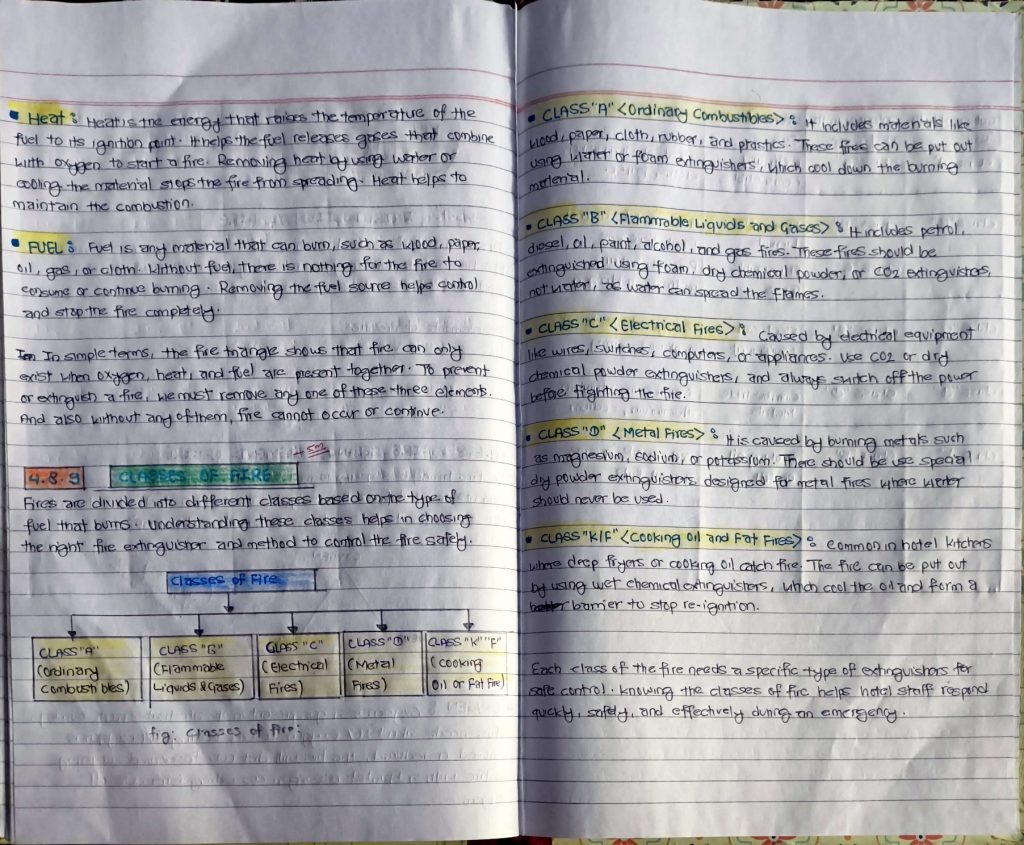 • Heat : Heat is the energy that raises the temperature of the
fuel to its ignition point. It helps the fuel releases gases that combine
with oxygen to start a fire. Removing heat by using water or
cooling the material stops the fire from spreading. Heat helps to
maintain the combustion.
• FUEL : Fuel is any material that can burn, such as wood, paper,
oil, gas, or cloth. Without fuel, there is nothing for the fire to
consume or continue burning. Removing the fuel source helps control
and stop the fire completely.
In simple terms, the fire triangle shows that fire can only
exist when oxygen, heat, and fuel are present together. To prevent
or extinguish a fire, we must remove any one of these three elements.
And also without any of them, fire cannot occur or continue.
5m
4.8.9 CLASSES OF FIRE
Fires are divided into different classes based on the type of
fuel that burns. Understanding these classes helps in choosing
the right fire extinguisher and method to control the fire safely.
Classes of Fire
CLASS "A" (Ordinary Combustibles)
CLASS "B" (Flammable Liquids & Gases)
CLASS "C" (Electrical Fires)
CLASS "D" (Metal Fires)
CLASS "K" "F" (Cooking Oil or Fat Fire)
fig: Classes of Fire:
• CLASS "A" <Ordinary Combustibles> : It includes materials like
wood, paper, cloth, rubber, and plastics. These fires can be put out
using water or foam extinguishers, which cool down the burning
material.
• CLASS "B" <Flammable Liquids and Gases> : It includes petrol,
diesel, oil, paint, alcohol, and gas fires. These fires should be
extinguished using foam, dry chemical powder, or CO2 extinguishers,
not water, as water can spread the flames.
• CLASS "C" <Electrical Fires> : Caused by electrical equipment
like wires, switches, computers, or appliances. Use CO2 or dry
chemical powder extinguishers, and always switch off the power
before fighting the fire.
• CLASS "D" <Metal Fires> : It is caused by burning metals such
as magnesium, sodium, or potassium. There should be use special
dry powder extinguishers designed for metal fires where water
should never be used.
• CLASS "K/F" <Cooking Oil and Fat Fires> : Common in hotel kitchens
where deep fryers or cooking oil catch fire. The fire can be put out
by using wet chemical extinguishers, which cool the oil and form a
barrier to stop re-ignition.
Each class of the fire needs a specific type of extinguishers for
safe control. Knowing the classes of fire helps hotel staff respond
quickly, safely, and effectively during an emergency.